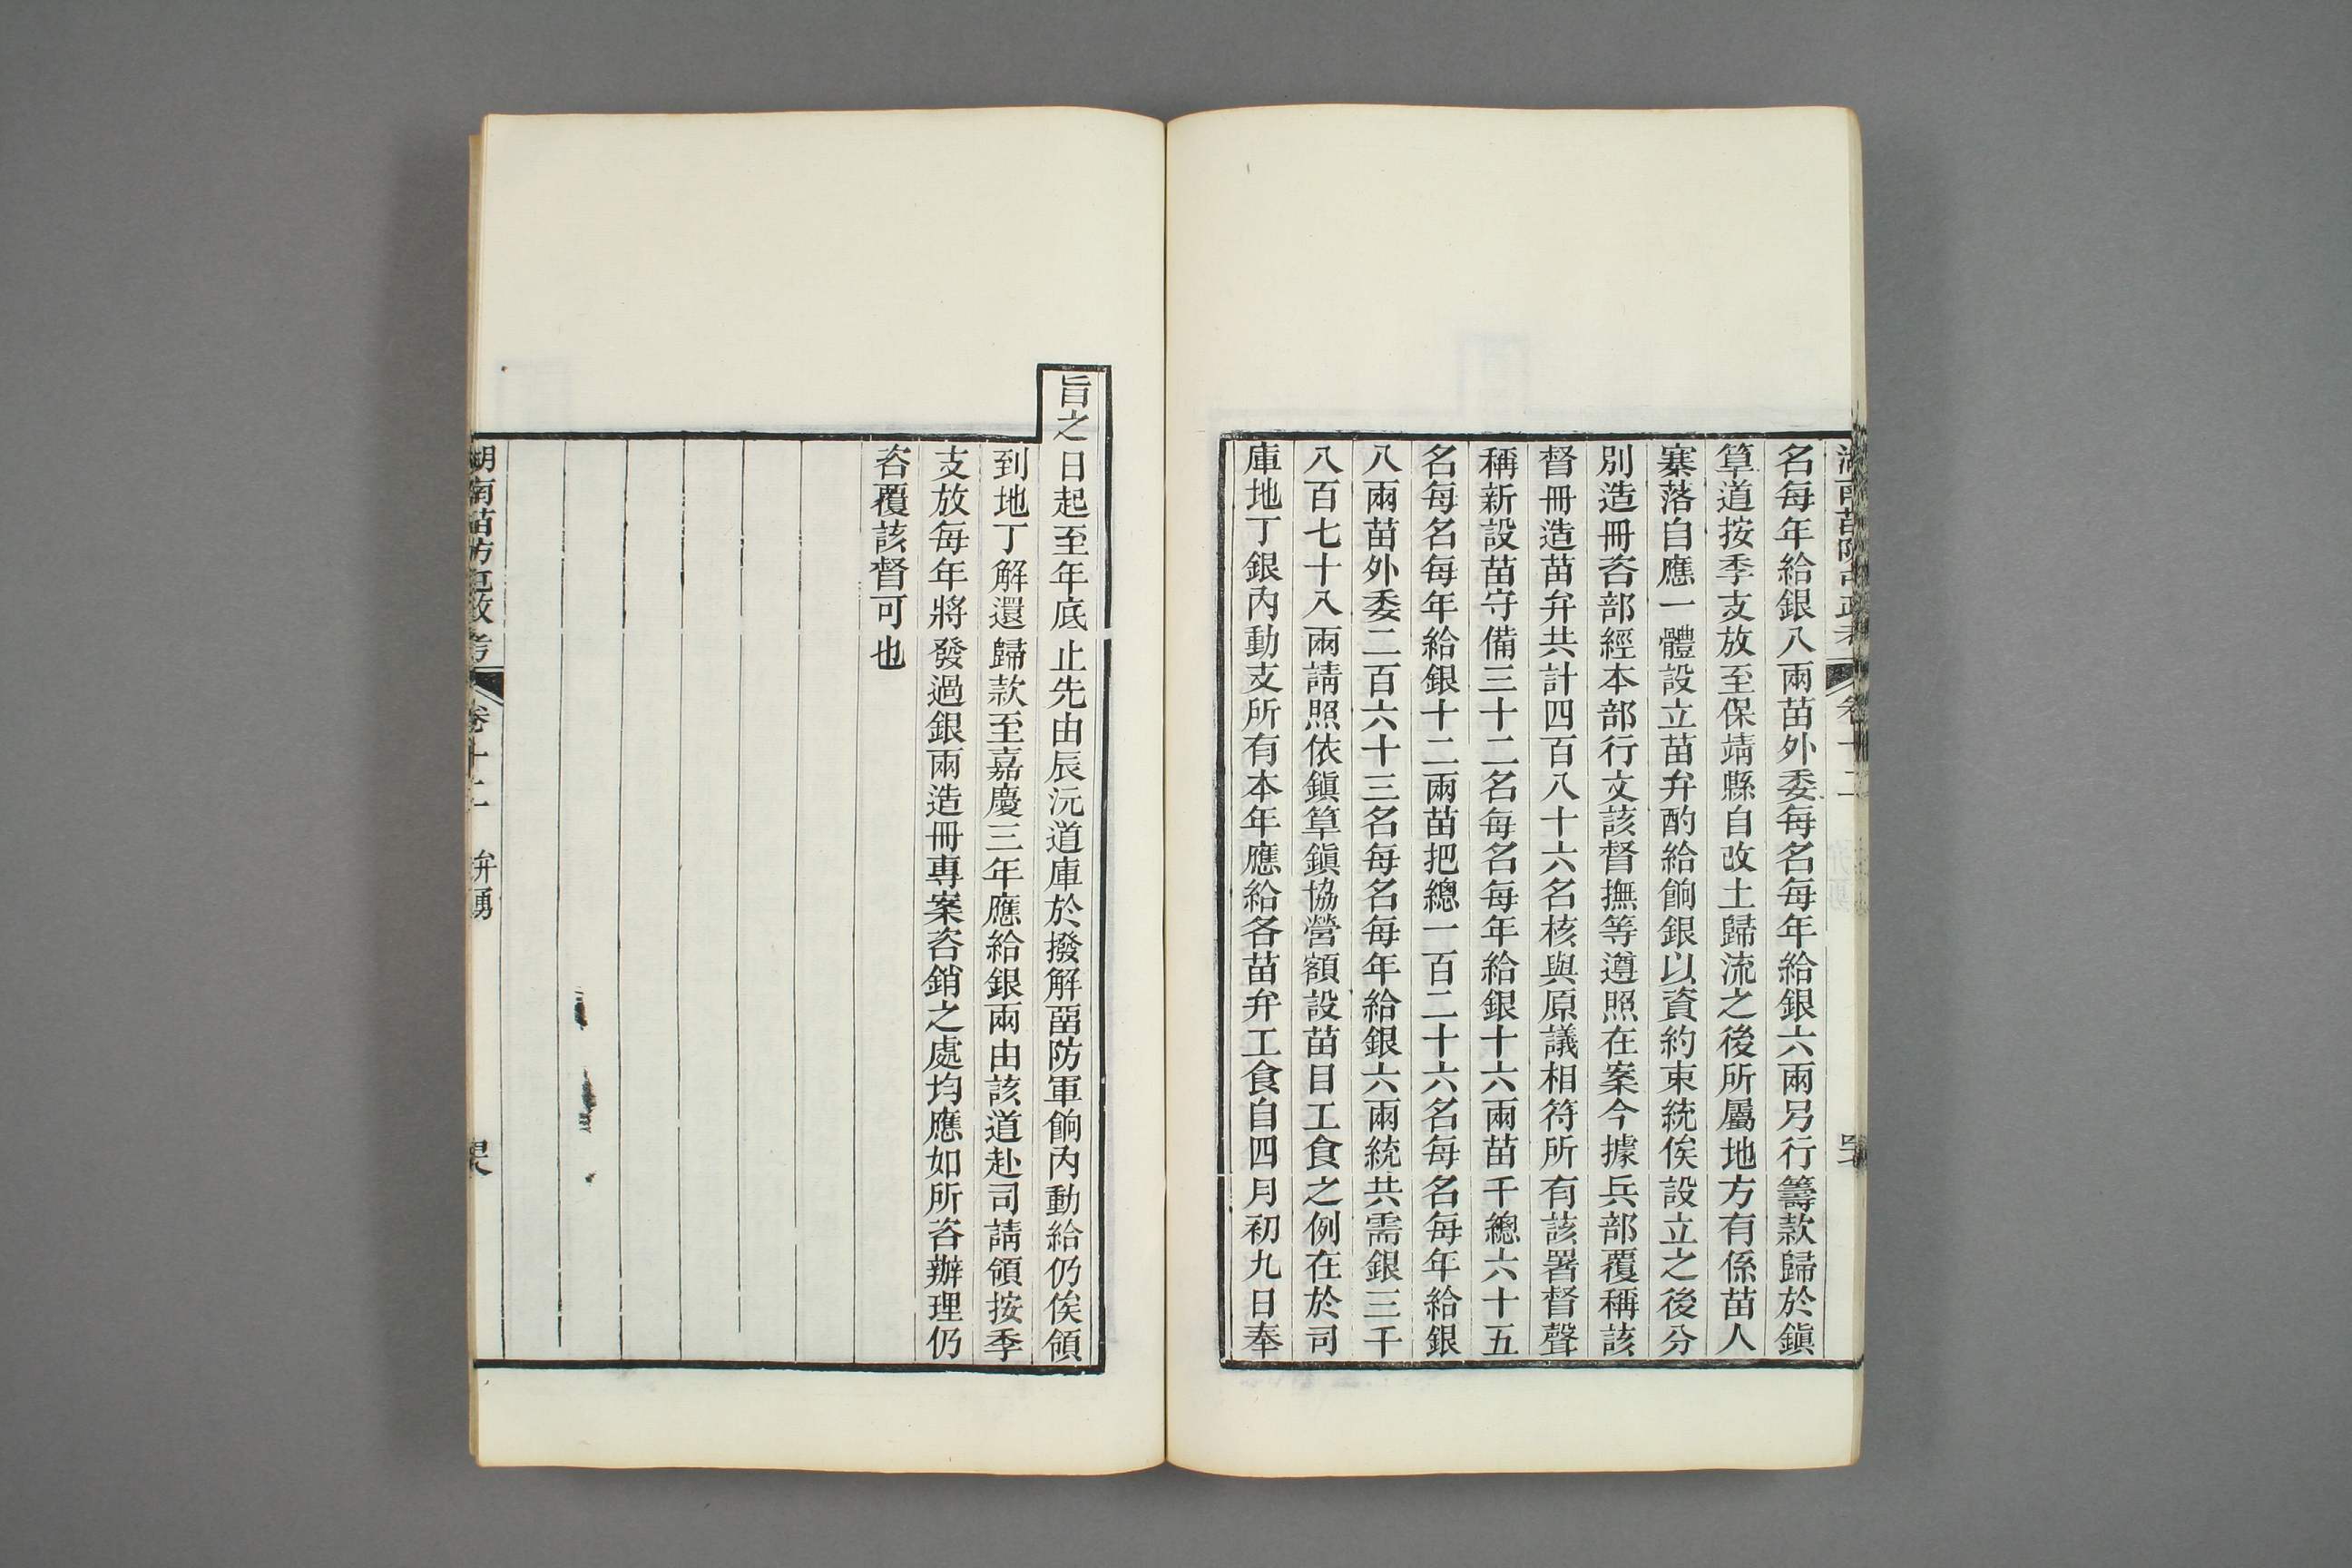 名每年給銀八兩苗外委每名每年給銀六兩另行籌款歸於鎮
筸道按季支放至保靖縣自改土歸流之後所屬地方有係苗人
寨落自應一體設立苗弁酌給餉銀以資約束統俟設立之後分
別造冊咨部經本部行文該督撫等遵照在案今據兵部覆稱該
督冊造苗弁共計四百八十六名核與原議相符所有該署督聲
稱新設苗守備三十二名每名每年給銀十六兩苗千總六十五
名每名每年給銀十二兩苗把總一百二十六名每名每年給銀
八兩苗外委二百六十三名每名每年給銀六兩統共需銀三千
八百七十八兩請照依鎮筸鎮協營額設苗目工食之例在於司
庫地丁銀內動支所有本年應給各苗弁工食自四月初九日奉
旨之日起至年底止先由辰沅道庫於撥解畱防軍餉內動給仍俟領
到地丁解還歸款至嘉慶三年應給銀兩由該道赴司請領按季
支放每年將發過銀兩造冊專案咨銷之處均應如所咨辦理仍
咨覆該督可也
湖南苗防屯政考 卷十二 弁勇